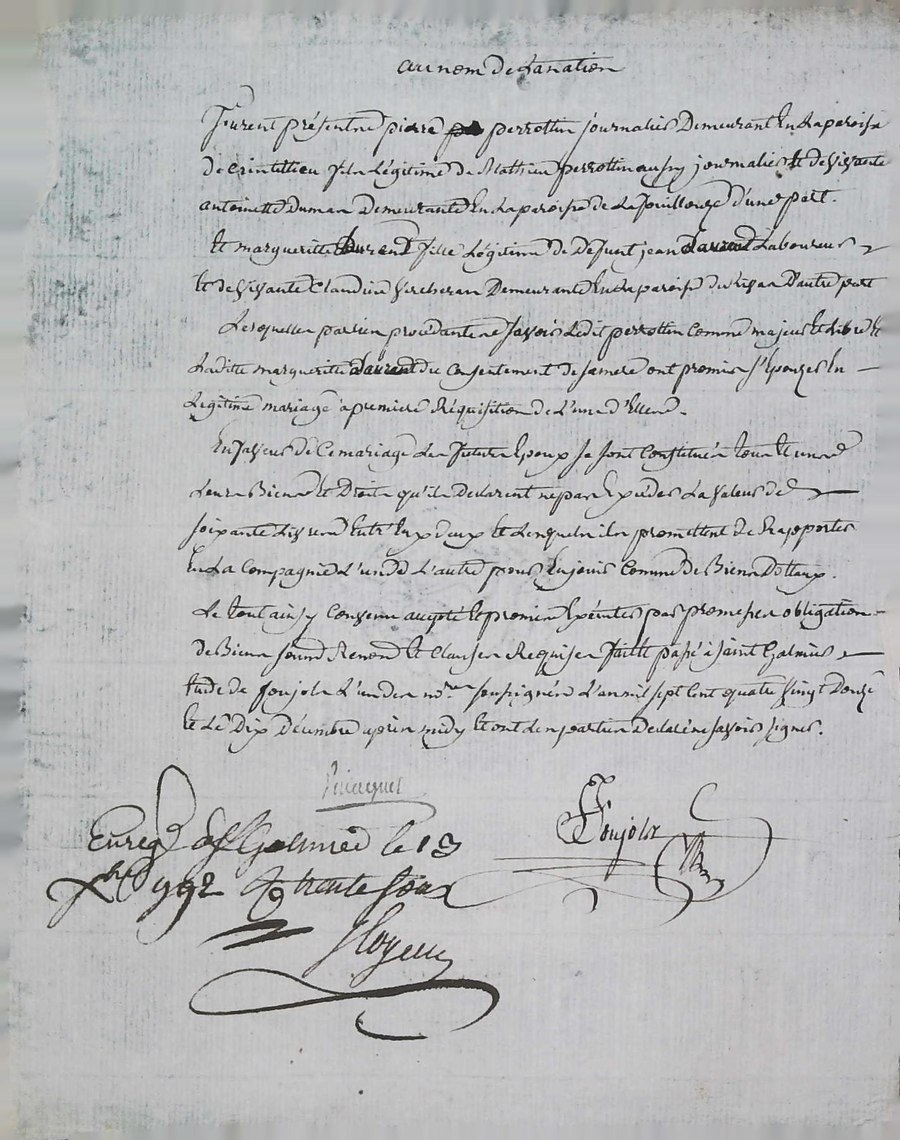 au nom de La nation
Furent présent pierre perrottin journalier Demeurant En La paroisse
de crintillieu fils Légitime de Mathieu perrottin aussy journalier Et deffivante
antoinette Dumas Demeurante En La paroisse de La fouillouze d'une part.
Et margueritte Laurent fille Légitime de Deffunt jean Laurent Laboureur
Et deffivante Claudine Demeurante En La paroisse de d'autre part
Lesquelles parties procédantes savoir Ledit perrottin Comme majeur Et Libre Et
Laditte margueritte Laurent du Consentement de sa mere ont promis s'Epouzer En
Legitime mariage a premiere Réquisition de L'un d'Eux
En faveur de Ce mariage Les futurs Epoux se sont Constitués tous Et uns
Leurs Biens Et Droits qu'ils Declarent ne pas Exceder La valeur de
soixante Livres Entr'Eux deux Et Lesquels ils promettent de Rapporter
En La Compagnie L'un de L'autre pour En jouir Comme de Biens Dottaux.
Le tout ainsy Convenu accepté Et promis Exécuter par promesses obligation
de Biens soumd Renond Et Clauses Requises faitte passé a Saint Galmier
Etude de Foujols L'un des nores soussignés L'an mil sept Cent quatre Vingt Douze
Et Le Dix Décembre après midy Et ont Les parties Declaré ne savoir signer.
Foujols
Enregé a St Galmier le 13
Xbre 1792 trente sous